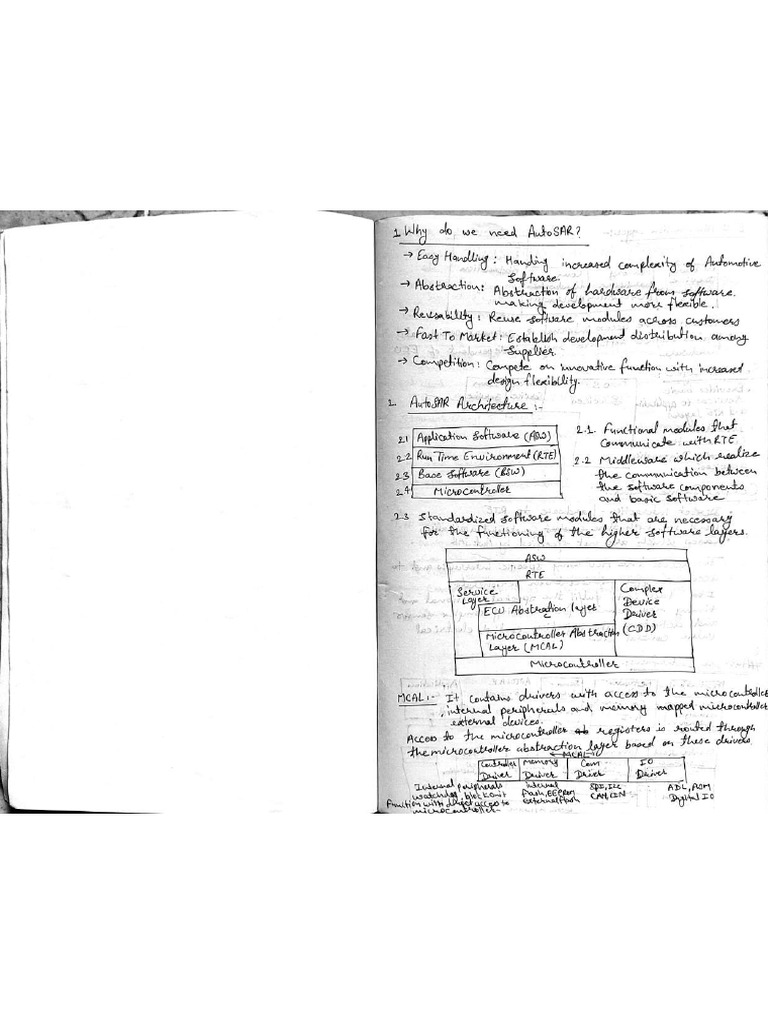 1. Why do we need AutoSAR?
→ Easy Handling : Handing increased complexity of Automotive
Software.
→ Abstraction: Abstraction of hardware from software.
making development more flexible.
→ Reusability: Reuse software modules across customers
→ Fast To Market: Establish development distribution among
Supplier.
→ Competition: Compete on innovative function with increased
design flexibility.
2. AutoSAR Architecture :-
2.1 Application Software (ASW)
2.2 Run Time Environment (RTE)
2.3 Base Software (BSW)
2.4 Microcontroller
2.1. Functional modules that
communicate with RTE
2.2 Middleware which realize
the communication between
the software components
and basic software
2.3 Standardized software modules that are necessary
for the functioning of the higher software layers.
ASW
RTE
Service
Layer
ECU Abstration layer
Microcontroller Abstraction
Layer (MCAL)
Complex
Device
Driver
(CDD)
Microcontroller
MCAL :- It contains drivers with access to the microcontroller
, internal peripherals and memory mapped microcontroller
external devices.
Access to the microcontroller registers is routed through
the microcontroller abstraction layer based on these drivers.
MCAL
Controller Driver
Memory Driver
Com Driver
IO Driver
Internal peripherals
watchdog,
Function with direct access to
microcontroller
internal
flash, EEPROM
external flash
SPI, I2C
CAN, LIN
Digital IO